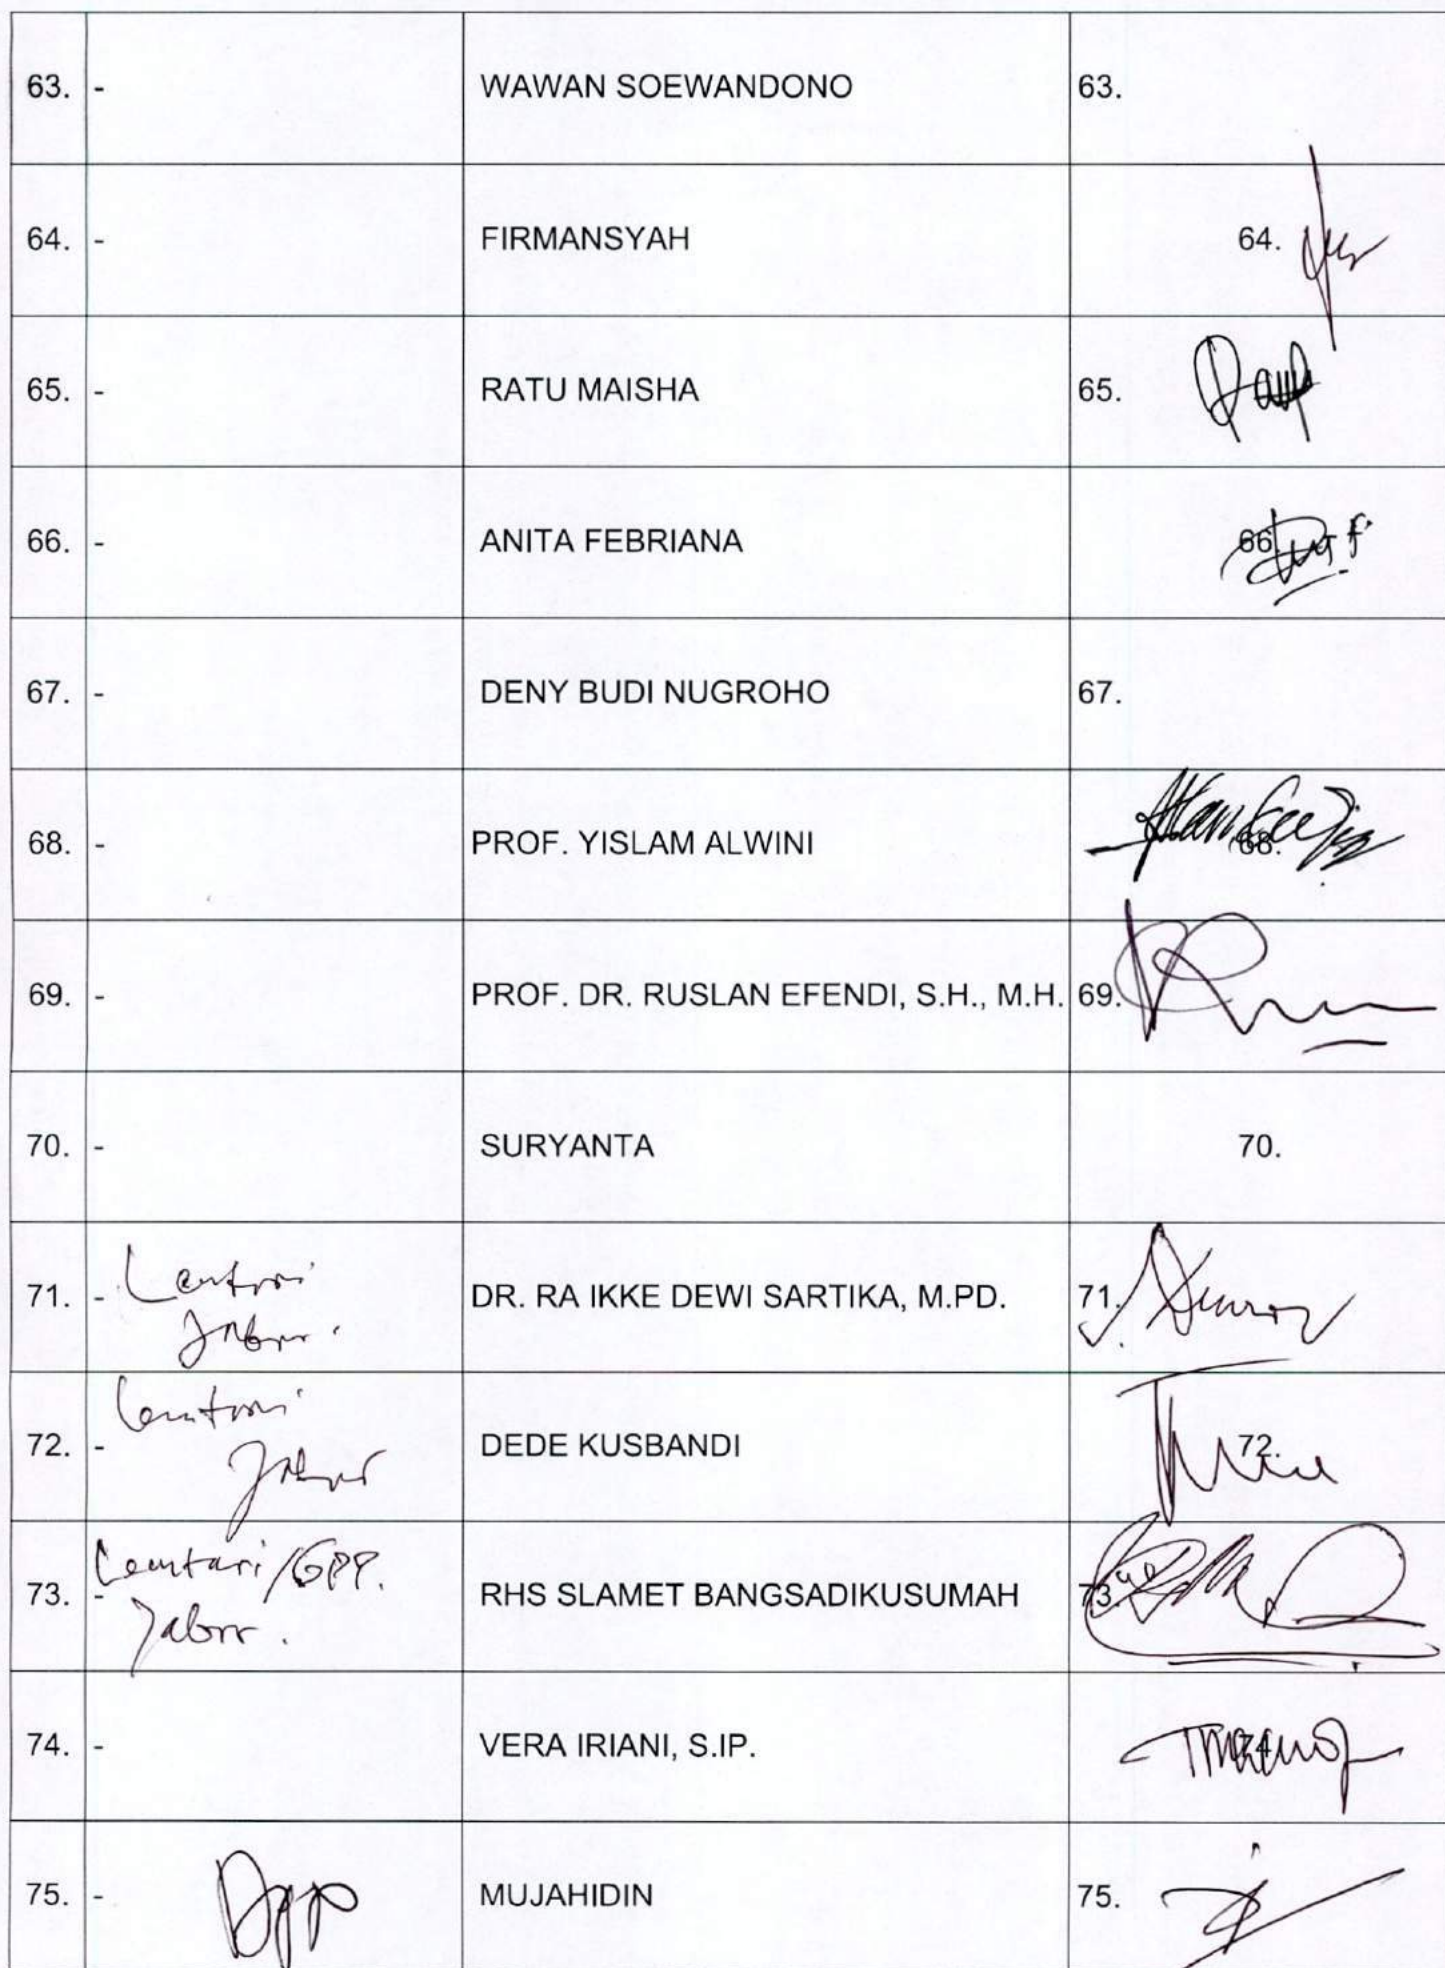 63. - WAWAN SOEWANDONO 63.
64. - FIRMANSYAH 64.
65. - RATU MAISHA 65.
66. - ANITA FEBRIANA 66
67. - DENY BUDI NUGROHO 67.
68. - PROF. YISLAM ALWINI 68.
69. - PROF. DR. RUSLAN EFENDI, S.H., M.H. 69.
70. - SURYANTA 70.
71. - DR. RA IKKE DEWI SARTIKA, M.PD. 71.
72. - DEDE KUSBANDI 72.
73. - /GPP. RHS SLAMET BANGSADIKUSUMAH 73.
74. - VERA IRIANI, S.IP. 74
75. - Dpp MUJAHIDIN 75.